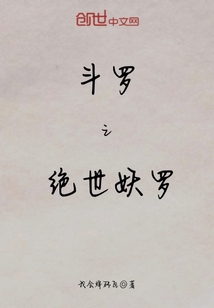 创世中文网
斗罗
之
绝世妖罗
我会绰码飞 著